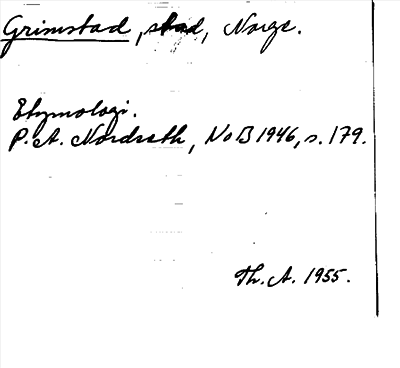 Grimstad, stad, Norge.
Etymologi.
P. A. Nordseth, NoB 1946, s. 179.
Th. A. 1955.